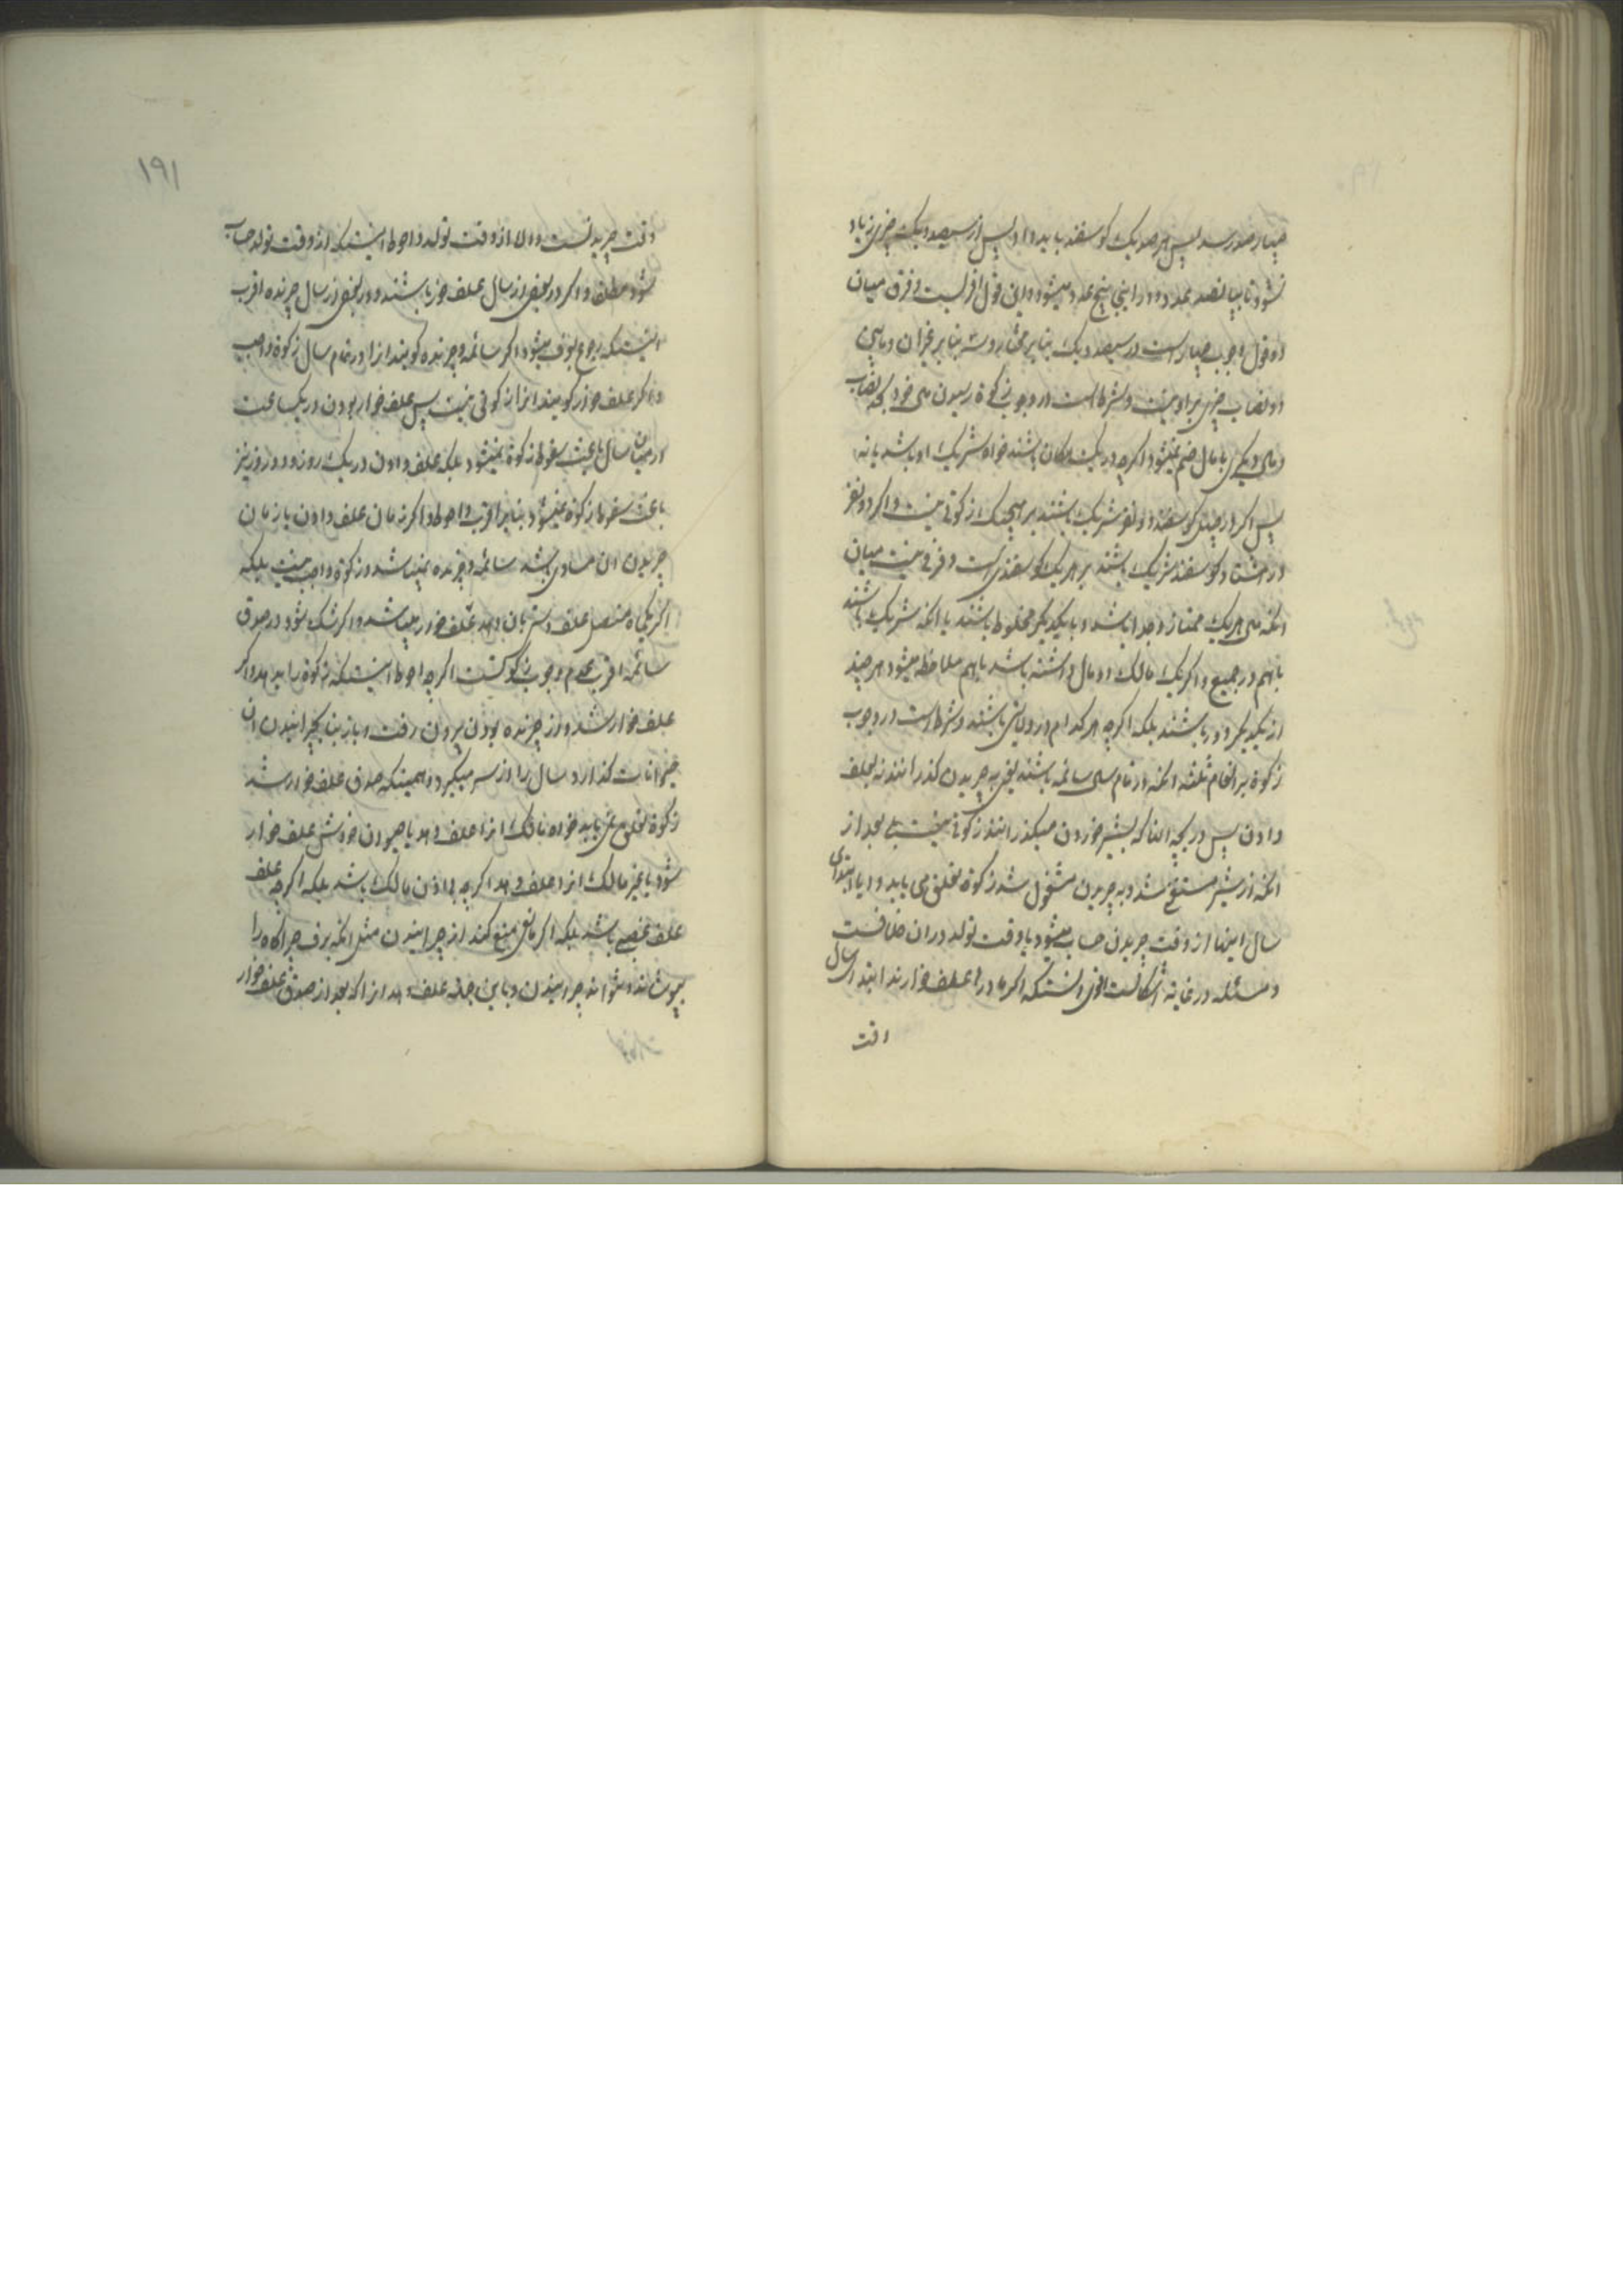 چهارصد رسد پس هر صد یک کوسفند باید داد و پس از سیصد و یک چیزی زیاد
نشود تا بپانصد عدد و در اینجا پنج عدد میشود و این قول اقوا است و فرق میان
دو قول وجوب چهار است در سیصد و یک بنا بر مختار و سه بنا بر غیر آن و مابین
دو نصاب چیزی بر او نیست و شرط است در وجوب زکوة رسیدن مال خود بحد نصاب
و مال دیگری با مال ضم نمیشود اگرچه در یک مکان باشند خواه شریک او باشد یا نه
پس اگر در چهل کوسفند دو نفر شریک باشند بر هیچیک زکوتی نیست و اگر دو نفر
در هشتاد کوسفند شریک باشند بر هر یک کوسفندی است و فرقی نیست میان
آنکه مال هر یک ممتاز و جدا باشد و با یکدیگر مخلوط باشند یا آنکه شریک باشند
باهم در جمیع و اگر یک مالک دو مال داشته باشد باهم ملاحظه میشود هر چند
از یکدیگر دور باشند بلکه اگرچه هر کدام در ولایتی باشند و شرط است در وجوب
زکوة بر انعام ثلثه آنکه در تمام سال سائمه باشند یعنی به چریدن گذرانند نه بعلف
دادن پس در بچه آنها که بشیر خوردن میگذرانند زکوتی نیست بلی بعد از
آنکه از شیر مستغنی شد و به چریدن مشغول شد زکوة تعلق می یابد و آیا ابتدای
سال اینها از وقت چریدن حساب میشود یا وقت تولد در آن خلافست
و مسئله در غایة اشکالست اقوی آنستکه اگر مادر آنها علف خوارند ابتدا سال
وقت
۱۹۱
وقت چریدنست و الا از وقت تولد و احوط اینستکه از وقت تولد حساب
شود مطلقا و اگر در بعض از سال علف خور باشند و در بعض از سال چرنده اقرب
اینستکه رجوع بعرف میشود اگر سائمه و چرنده گویند آنرا در تمام سال زکوة واجب
و اگر علف خوار گویند آنرا زکوتی نیست پس علف خوار بودن در یک ساعت
در میان سال باعث سقوط زکوة نمیشود بلکه علف دادن در یک روز و دو روز نیز
باعث سقوط زکوة نمیشود بنا بر اقرب و احوط و اگر زمان علف دادن با زمان
چریدن آن مساوی باشد سائمه و چرنده نمیباشد و زکوة واجب نیست بلکه
اگر یکماه متصل علف دستی بآن دهد علف خوار میباشد و اگر شک شود در صدق
سائمه اقرب عدم وجوب زکوتست اگرچه احوط اینستکه زکوة را بدهد و اگر
علف خوار شد و از چرنده بودن بیرون رفت و باز بنا بچرانیدن آن
حیوانات گذارد سال را از سر میگیرد و همینکه صدق علف خوار شد
زکوة تعلق نمی یابد خواه مالک آنرا علف دهد یا حیوان خودش علف خوار
شود یا غیر مالک آنرا علف دهد اگرچه بی اذن مالک باشد بلکه اگرچه علف
علف غصبی باشد بلکه اگر مانعی منع کند از چرانیدن مثل آنکه برف چراگاه را
بپوشاند و نتواند چرانیدن و باین جهة علف دهد آنرا که بعد از صدق علف خوار